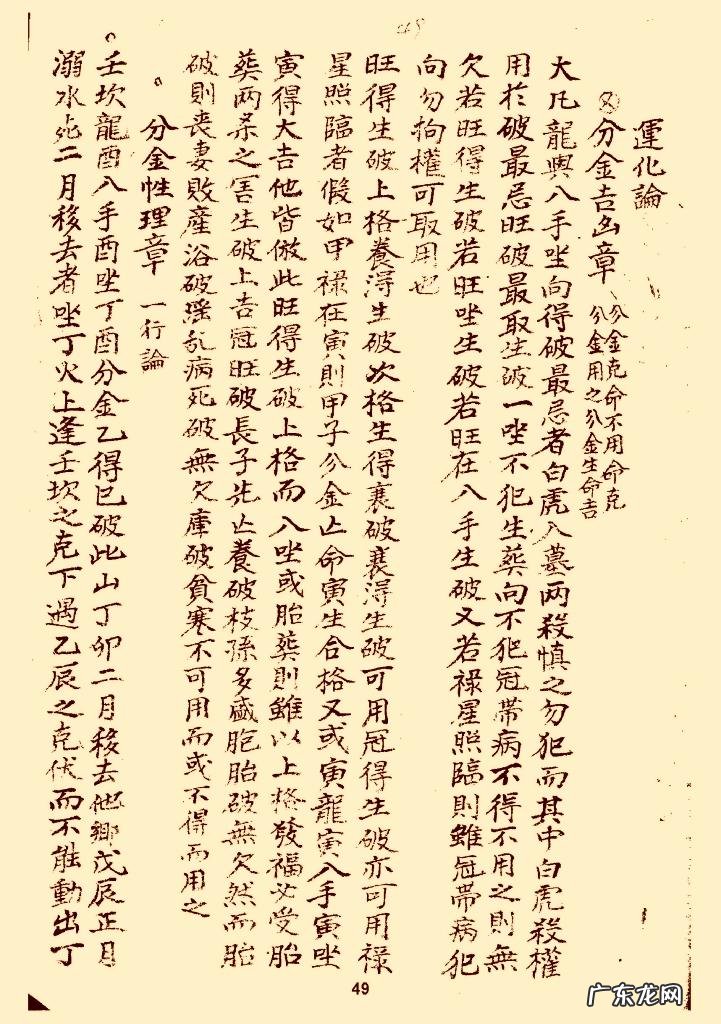 運化論
分金吉凶章
分金克命不用命克
分金用之分金生命吉
大凡龍與八手坐向得破最忌者白虎入墓兩殺慎之勿犯而其中白虎殺權
用於破最忌旺破最取生破一坐不犯生葬向不犯冠帶病不得不用之則無
欠若旺得生破若旺坐生破若旺在入手生破又若祿星照臨則雖冠帶病犯
向勿拘權可取用也
旺得生破上格養得生破次格生得衰破衰得生破可用冠得生破亦可用祿
星照臨者假如甲祿在寅則甲子分金亡命寅生合格又或寅龍寅入手寅坐
寅得大吉他皆倣此旺得生破上格而入坐或胎葬則雖以上格發福必受胎
葬兩杀之害生破上吉冠旺破長子先亡養破枝孫多盛胞胎破無欠然而胎
破則喪妻敗產浴破淫乱病死破無欠庫破貧寒不可用而或不得而用之
分金性理章 一行論
壬坎龍酉入手酉坐丁酉分金乙得巳破此山丁卯二月移去他鄉戊辰正月
溺水死二月移去者坐丁火上逢壬坎之克下遇乙辰之克伏而不能動出丁
49
广东龙网